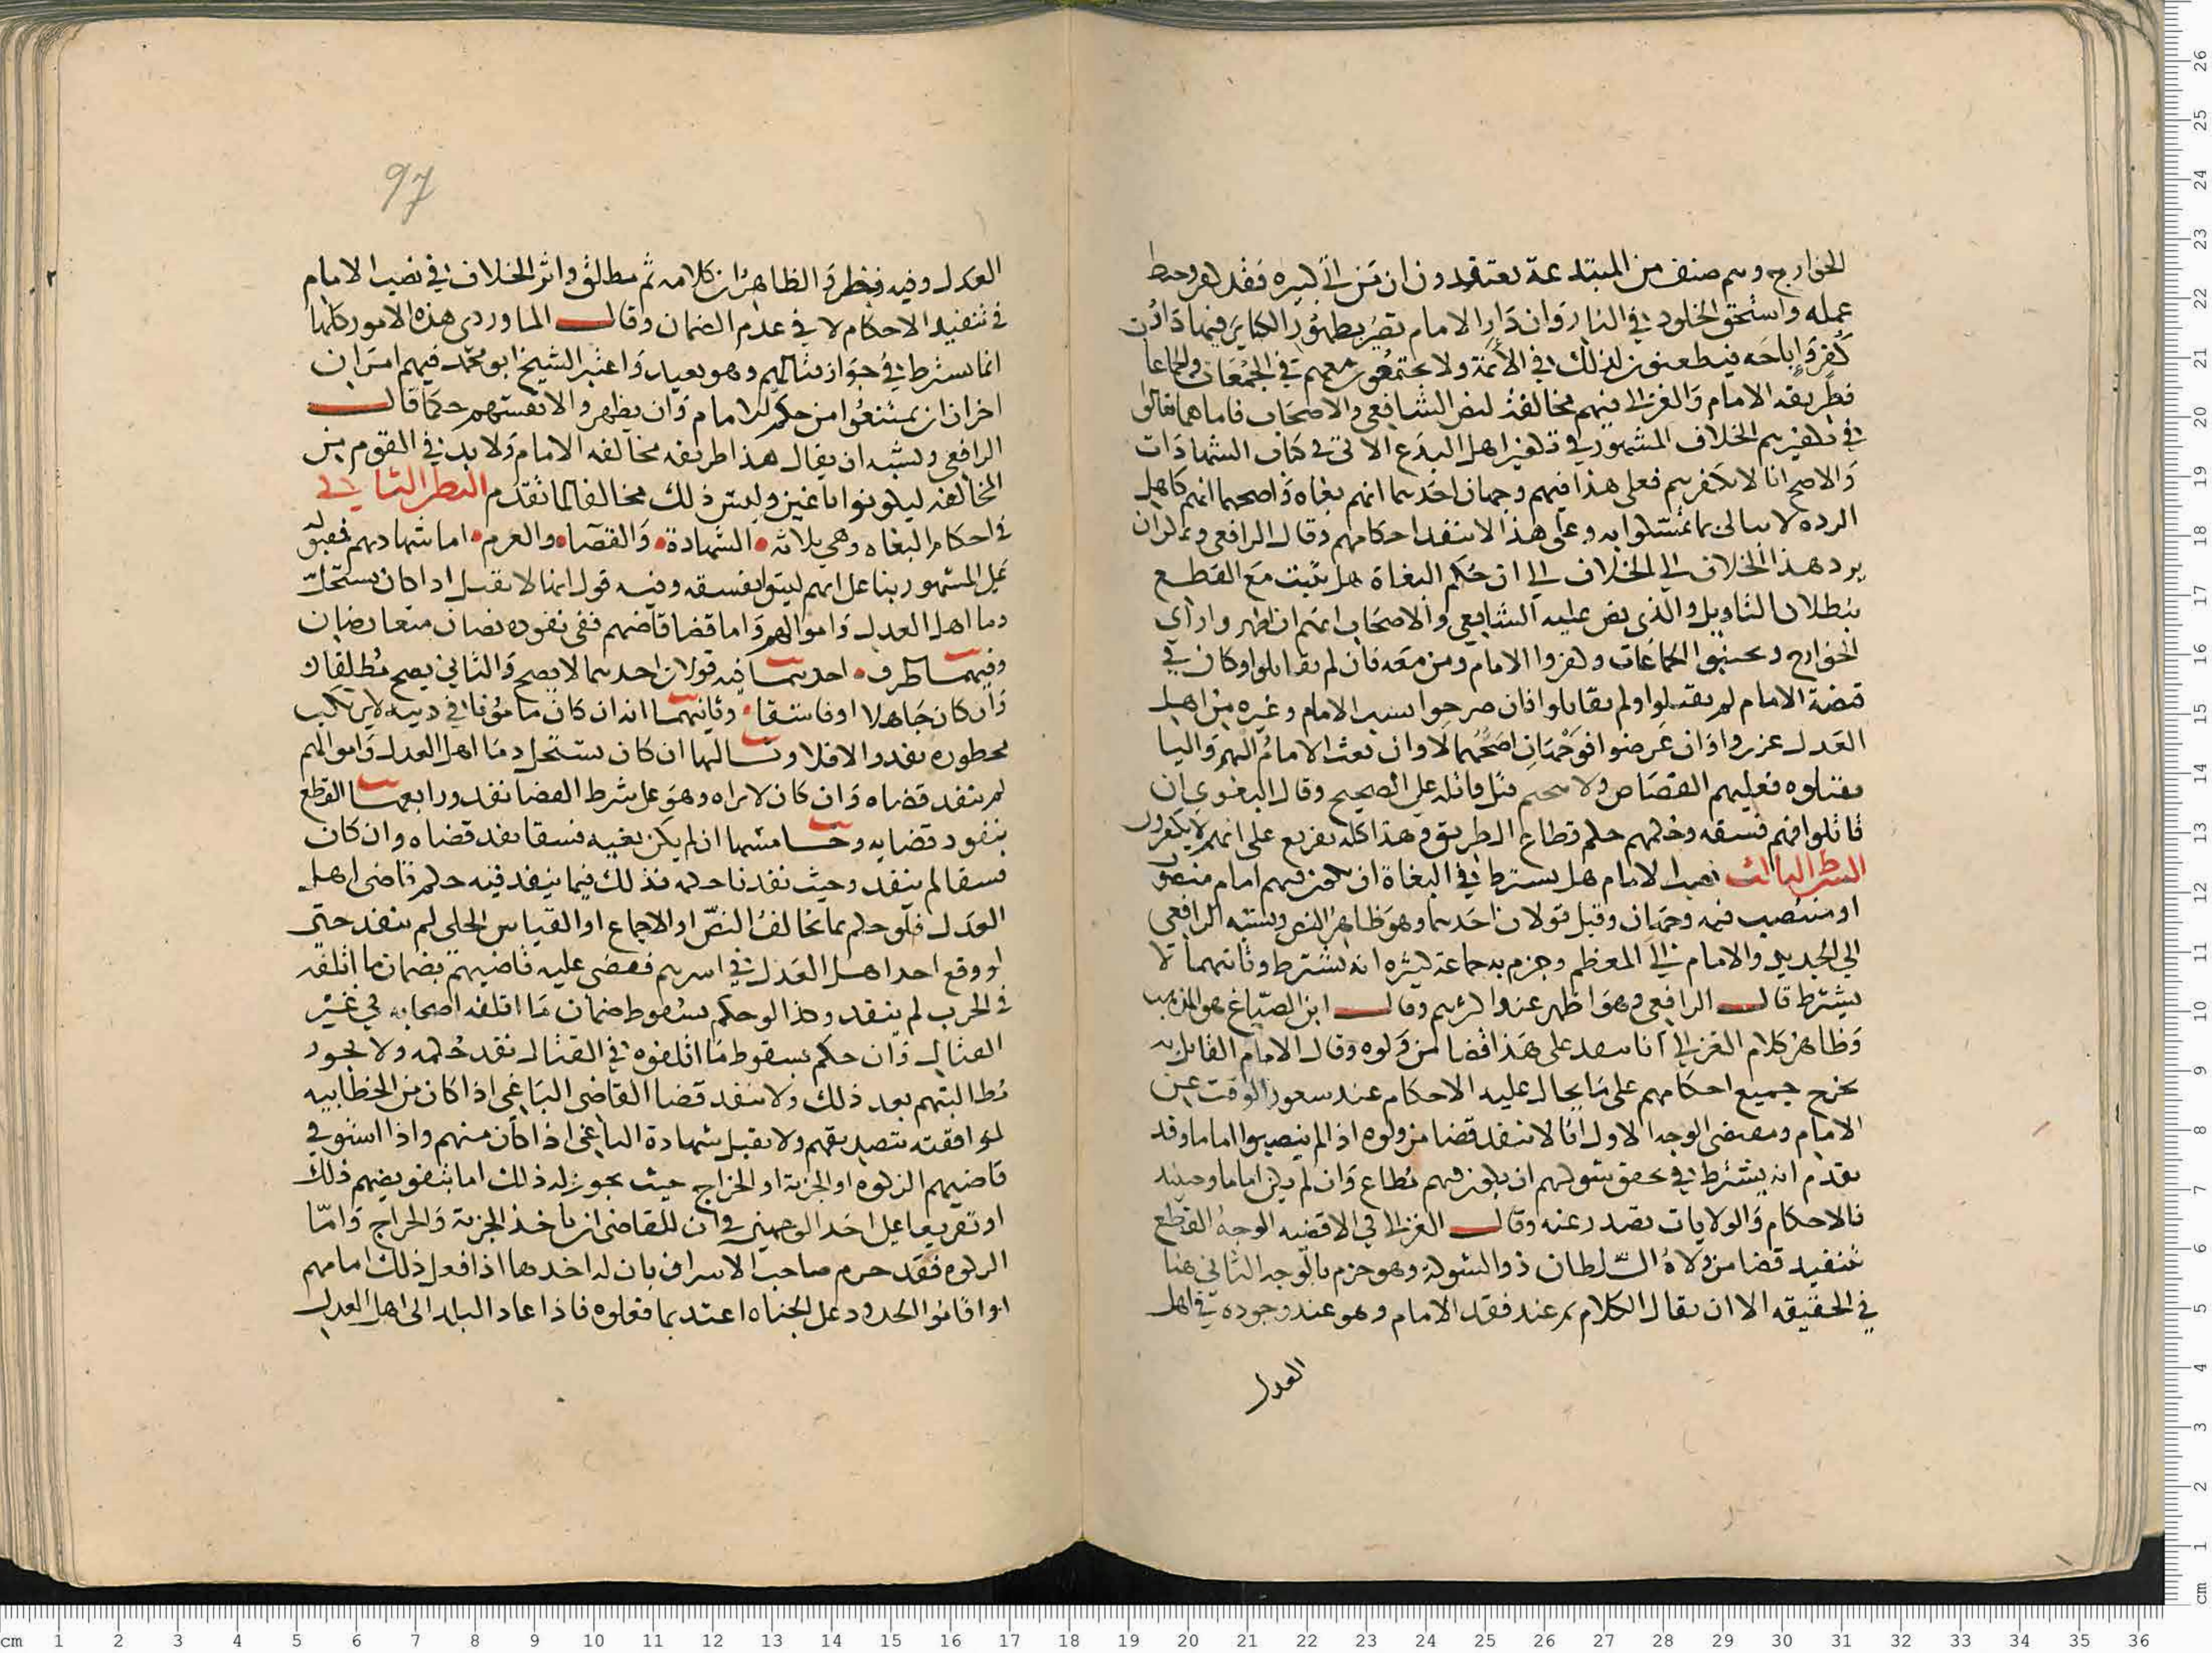 الخوارج وهم صنف من المبتدعة يعتقدون ان من اتى كبيره فقد كفر وحبط
عمله واستحق الخلود في النار وان دار الامام تصير بظهور الكبائر فيها دار
كفر واباحه فيطعنون لذلك في الائمة ولا يجتمعون معهم في الجمعات والجماعات
فطريقه الامام والغزالي فيهم مخالفة لنص الشافعي والاصحاب فاما هما فقالا
في تكفيرهم الخلاف المشهور في تكفير اهل البدع الاتي في كتاب الشهادات
والاصح انا لا نكفرهم فعلى هذا فيهم وجهان احدهما انهم بغاه واصحهما انهم كاهل
الرده لا نبالي بما تمسكوا به وعلى هذا لا ننفد احكامهم وقال الرافعي ويمكن ان
يرد هذا الخلاف الى الخلاف الى ان حكم البغاة هل يثبت مع القطع
ببطلان التاويل والذي نص عليه الشافعي والاصحاب انهم ان اظهروا راي
الخوارج وتجنبوا الجماعات وكفروا الامام ومن معه فان لم يقاتلوا وكان في
قبضة الامام لم يقتلوا ولم يقاتلوا فان صرحوا بسب الامام وغيره من اهل
العدل عزروا وان عرضوا فوجهان اصحهما لا وان بعث الامام اليهم واليا
فقتلوه فعليهم القصاص ولا يتحتم قتل قاتله على الصحيح وقال البغوي ان
قاتلوا فهم فسقه وحكمهم حكم قطاع الطريق وهذا كله تفريع على انهم لا يكفرون
الشرط الثالث نصب الامام هل يشترط في البغاة ان يكون فيهم امام منصوب
او منتصب فيه وجهان وقيل قولان احدهما وهو ظاهر النص ونسبه الرافعي
الى الجديد والامام الى المعظم وجزم به جماعة كثيره انه يشترط وثانيهما لا
يشترط قال الرافعي وهو اظهر عند اكثرهم وقال ابن الصباغ هو المذهب
وظاهر كلام الغزالي انا ننفد على هذا قضا من ولوه وقال الامام القائل به
يخرج جميع احكامهم على ما يحال عليه الاحكام عند شغور الوقت عن
الامام ومقتضى الوجه الاول انا لا ننفد قضا من ولوه اذ الم ينصبوا اماما وقد
تقدم انه يشترط في تحقق شوكتهم ان يكون فيهم مطاع وان لم يكن اماما وحينيد
فالاحكام والولايات تصدر عنه وقال الغزالي في الاقضيه الوجه القطع
بتنفيد قضا من ولاه السلطان ذو الشوكة وهو جزم بالوجه الثاني هنا
في الحقيقه الا ان يقال الكلام ثم عند فقد الامام وهو عند وجوده في اهل
العدل
97
العدل وفيه نظر والظاهر ان كلامه ثم مطلق واثر الخلاف في نصب الامام
في تنفيد الاحكام لا في عدم الضمان وقال الماوردي هذه الامور كلها
انما تشترط في جواز قتالهم وهو بعيد واعتبر الشيخ ابو محمد فيهم امران
اخران ان يمتنعوا من حكم الامام وان يظهروا لانفسهم حكما قال
الرافعي ويشبه ان يقال هذا طريقه مخالفه الامام ولا بد في القوم من
المخالفه ليكونوا باغين وليس ذلك مخالفا لما تقدم النظر الثاني
في احكام البغاه وهي ثلاثه الشهادة والقضا والغرم اما شهادتهم فتقبل
على المشهور بنا على انهم ليسوا بفسقه وفيه قول انها لا تقبل اذا كان يستحل
دما اهل العدل واموالهم واما قضا قاضيهم ففي نفوده نصان متعارضان
وفيهما طرق احدهما فيه قولان احدهما لا يصح والثاني يصح مطلقا
وان كان جاهلا او فاسقا وثانيهما انه ان كان مامونا في دينه لا يرتكب
محطوره نفد والا فلا وثالثها ان كان يستحل دما اهل العدل واموالهم
لم ينفد قضاه وان كان لا يراه وهو على شرط القضا نفد ورابعها القطع
بنفود قضايه وخامسها ان لم يكن بغيه فسقا نفد قضاه وان كان
فسقا لم ينفد وحيث نفدنا حكمه فذلك فيما ينفد فيه حكم قاضي اهل
العدل فلو حكم بما يخالف النص او الاجماع او القياس الجلي لم ينفد حتى
لو وقع احد اهل العدل في اسرهم فقضى عليه قاضيهم بضمان ما اتلفه
في الحرب لم ينفد وكذا لو حكم بسقوط ضمان ما اتلفه اصحابه في غير
القتال وان حكم بسقوط ما اتلفوه في القتال نفد حكمه ولا يجوز
مطالبتهم بعد ذلك ولا ينفد قضا القاضي الباغي اذا كان من الخطابيه
لموافقته بتصديقهم ولا يقبل شهادة الباغي اذا كان منهم واذا استوفى
قاضيهم الزكوه او الجزية او الخراج حيث يجوز له ذلك اما بتفويضهم ذلك
او تفريعا على احد الوجهين في ان للقاضي ان ياخذ الجزية والخراج واما
الزكوه فقد جزم صاحب الاسراف بان له اخدها اذا فعل ذلك امامهم
او اقاموا الحدود على الجناه اعتد بما فعلوه فاذا عاد البلد الى اهل العدل